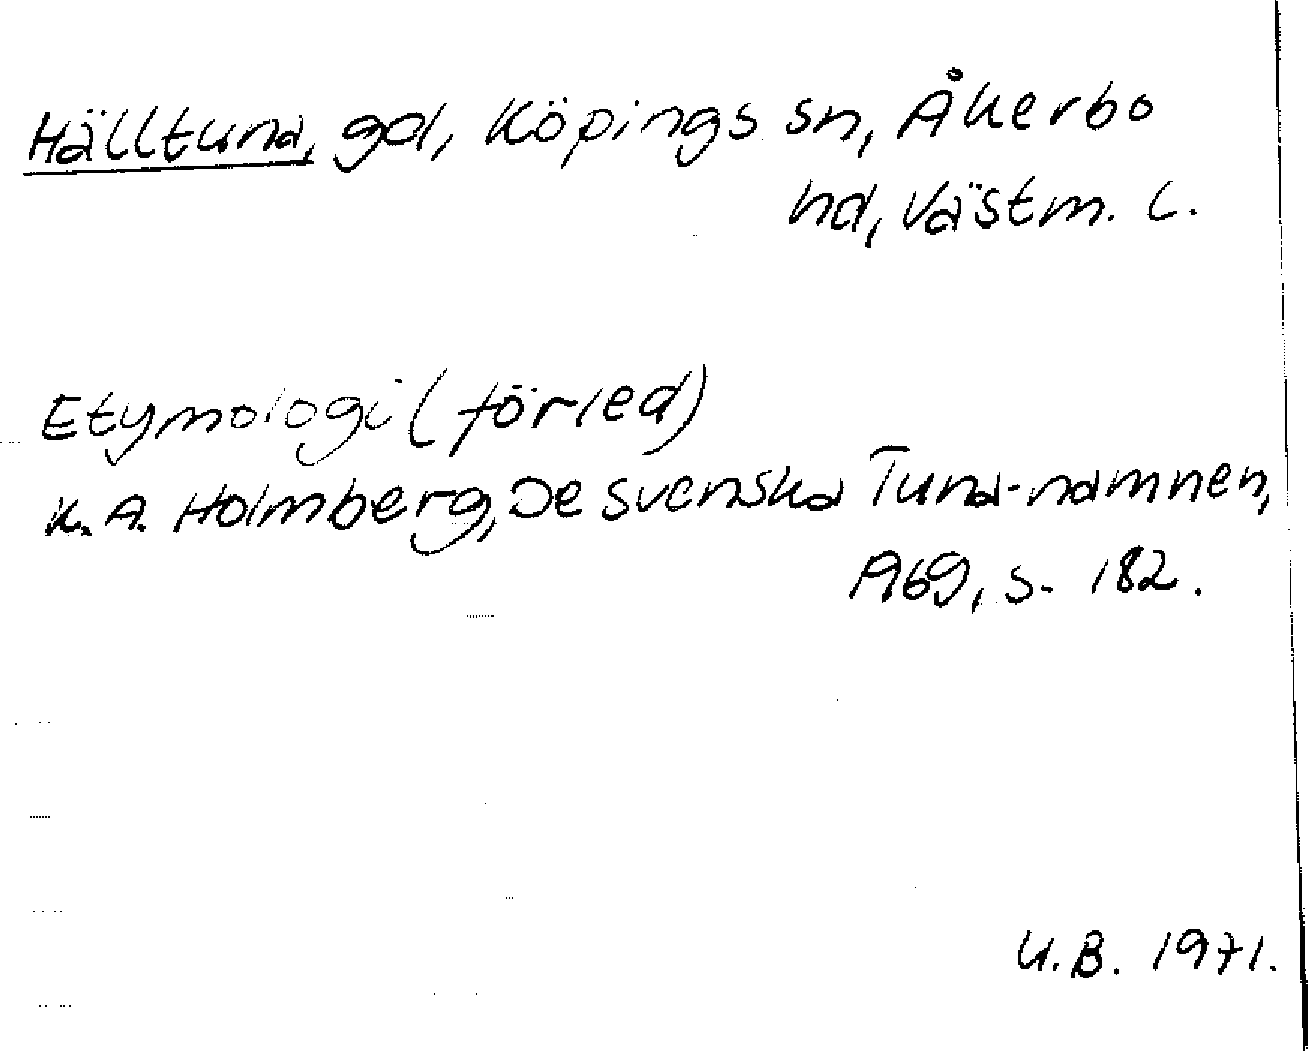 Hälltuna, gd, Köpings sn, Åkerbo
hd, Västm. L.
Etymologi (förled)
K.A. Holmberg, De svenska Tuna-namnen,
1969, s. 182.
U.B. 1971.